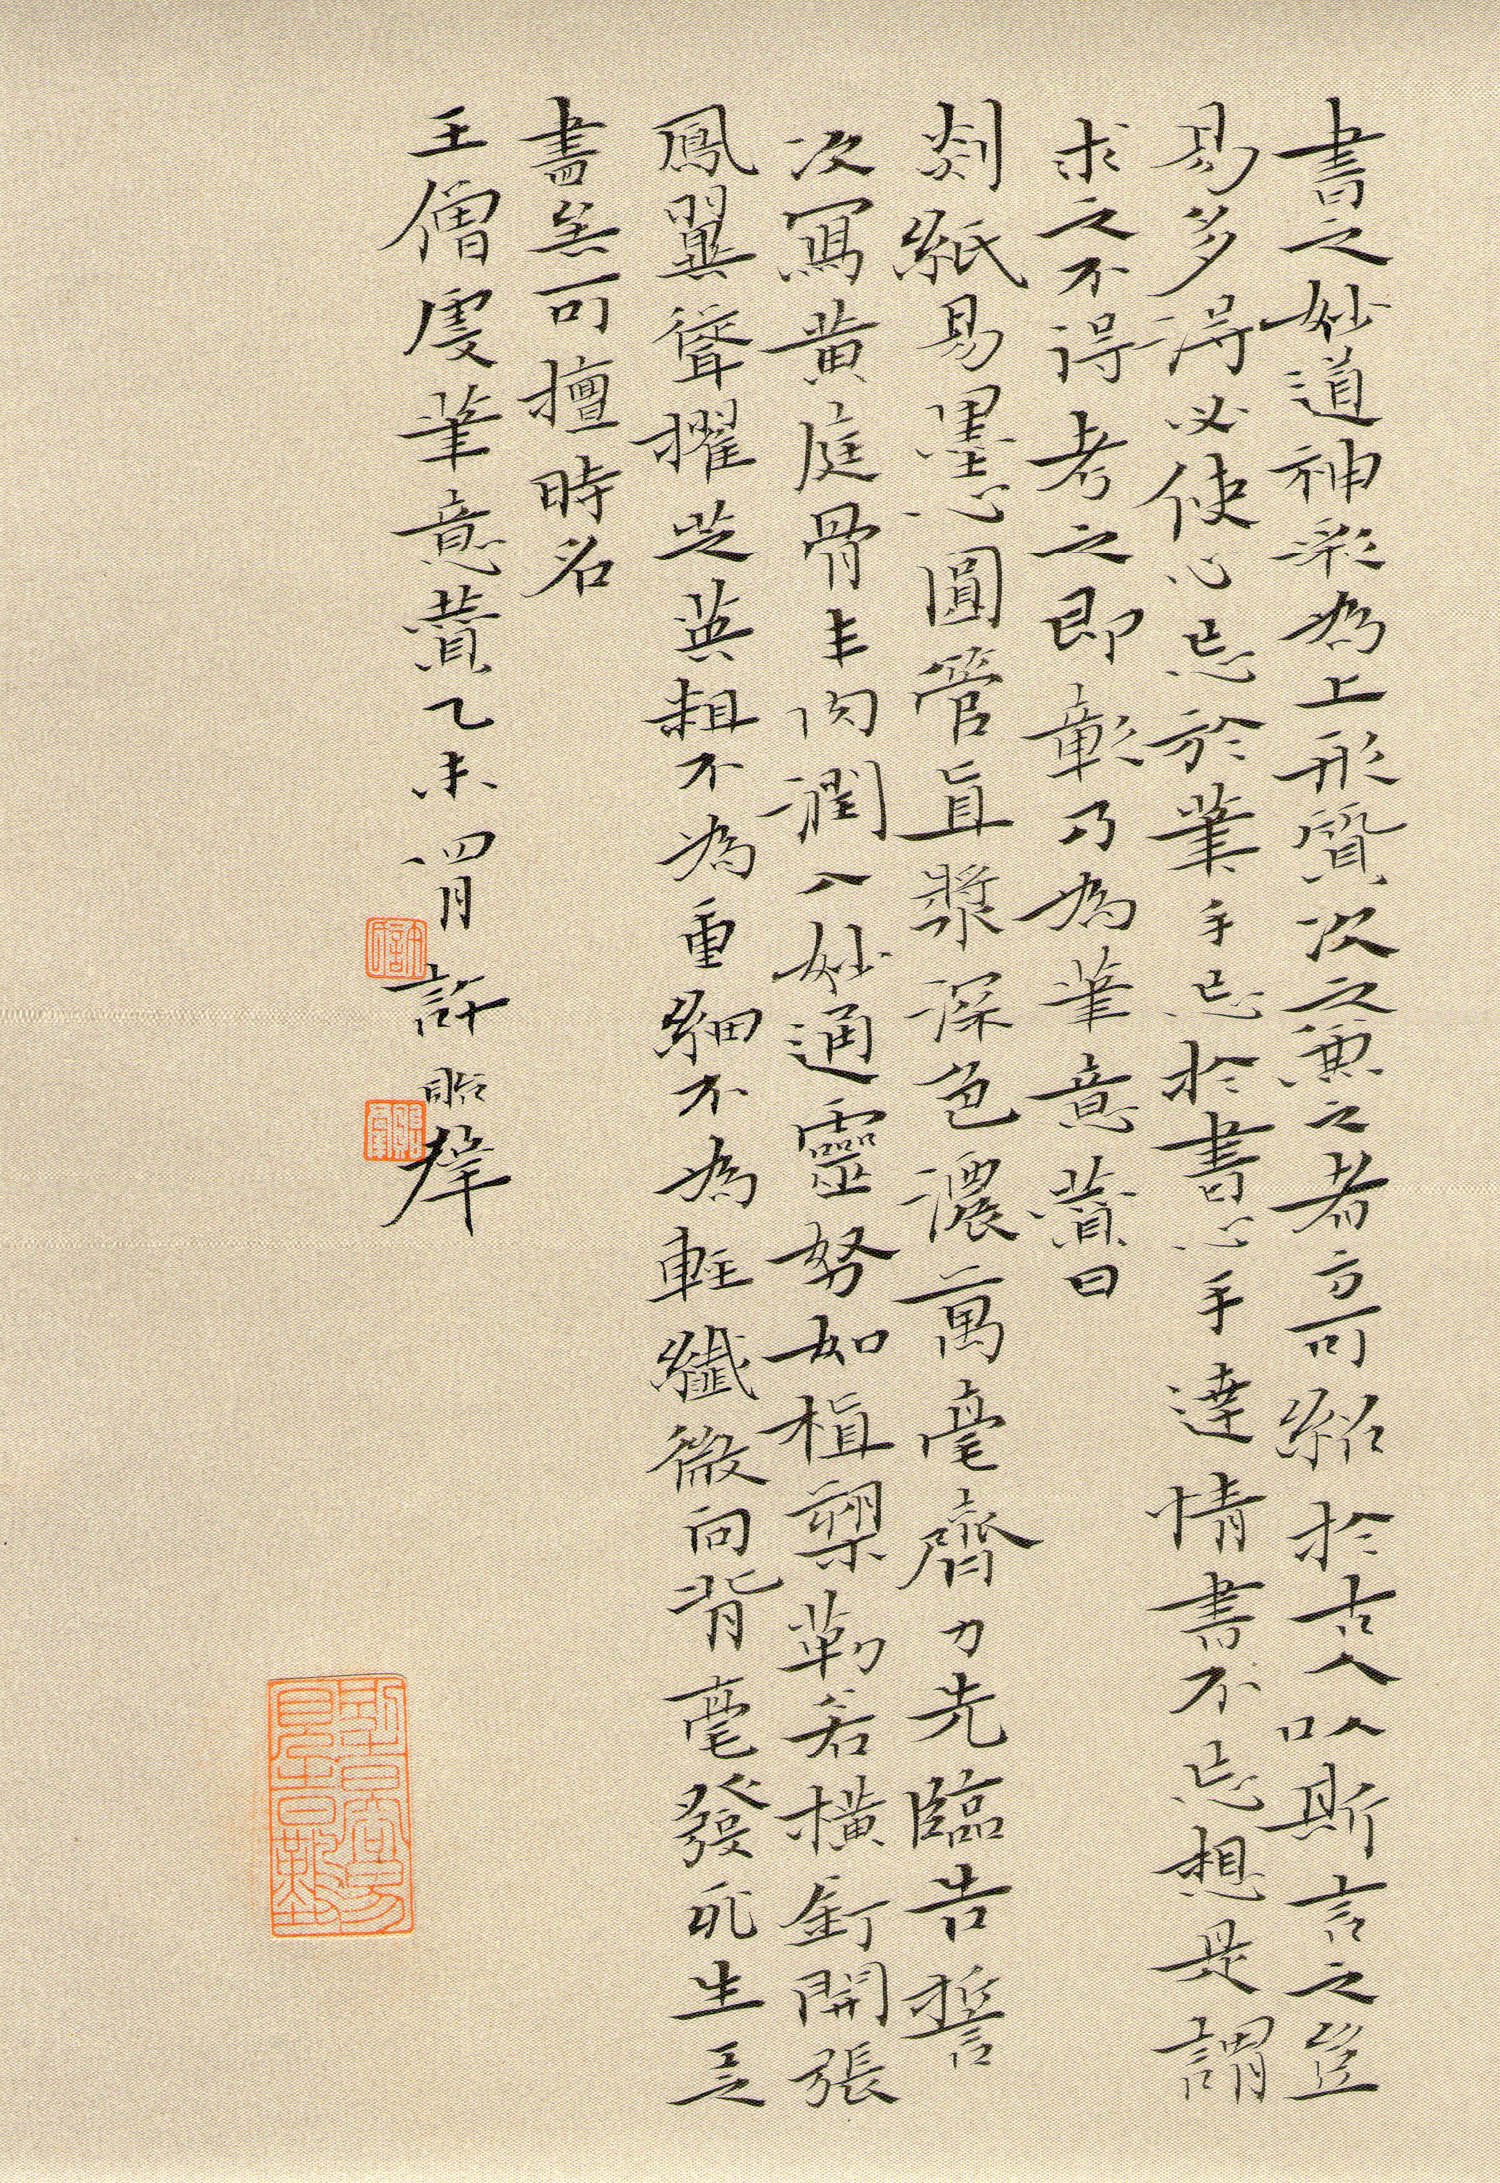 書之妙道神彩為上形質次之兼之者方可紹於古人以斯言之豈
易多得必使心忘於筆手忘於書心手達情書不忘想是謂
求之不得考之即彰乃為筆意贊曰
剡紙易墨心圓管直漿深色濃萬毫齊力先臨告誓
次寫黃庭骨丰肉潤入妙通靈努如植槊勒若橫釘開張
鳳翼聳擢芝英粗不為重細不為輕纖微向背毫發死生之
書羔可擅時名
王僧虔筆意贊乙未四月 許昭